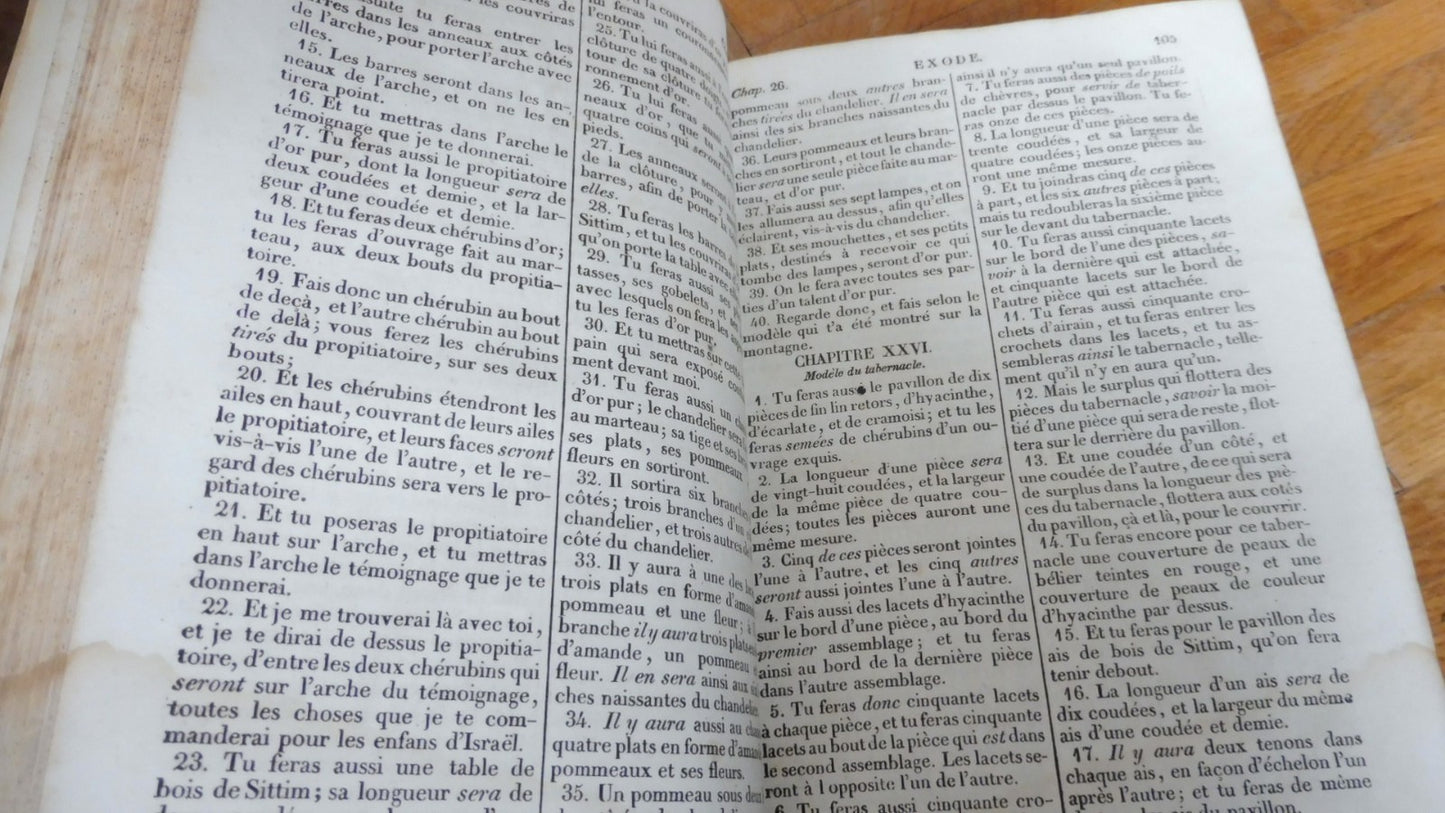 suite tu feras entrer les
barres dans les anneaux aux côtés
de l'arche, pour porter l'arche avec
elles.
15. Les barres seront dans les an-
neaux de l'arche, et on ne les en
tirera point.
16. Et tu mettras dans l'arche le
témoignage que je te donnerai.
17. Tu feras aussi le propitiatoire
d'or pur, dont la longueur sera de
deux coudées et demie, et la lar-
geur d'une coudée et demie.
18. Et tu feras deux chérubins d'or;
tu les feras d'ouvrage fait au mar-
teau, aux deux bouts du propitia-
toire.
19. Fais donc un chérubin au bout
de deçà, et l'autre chérubin au bout
de delà; vous ferez les chérubins
tirés du propitiatoire, sur ses deux
bouts;
20. Et les chérubins étendront les
ailes en haut, couvrant de leurs ailes
le propitiatoire, et leurs faces seront
vis-à-vis l'une de l'autre, et le re-
gard des chérubins sera vers le pro-
pitiatoire.
21. Et tu poseras le propitiatoire
en haut sur l'arche, et tu mettras
dans l'arche le témoignage que je te
donnerai.
22. Et je me trouverai là avec toi,
et je te dirai de dessus le propitia-
toire, d'entre les deux chérubins qui
seront sur l'arche du témoignage,
toutes les choses que je te com-
manderai pour les enfans d'Israël.
23. Tu feras aussi une table de
bois de Sittim; sa longueur sera de
l'entour.
25. Tu lui feras aussi
clôture de quatre
tour de sa clôture tu
ronnement d'or.
26. Tu lui feras aussi
neaux d'or, que tu
quatre coins qui seront
pieds.
27. Les anneaux seront
de la clôture, pour y
barres, afin de porter la
elles.
28. Tu feras les barres de
Sittim, et tu les couvriras
qu'on porte la table avec
29. Tu feras aussi ses
tasses, ses gobelets, et
avec lesquels on fera les
tu les feras d'or pur.
30. Et tu mettras sur cette
pain qui sera exposé
ment devant moi.
31. Tu feras aussi un
d'or pur; le chandelier sera
au marteau; sa tige et ses
ses plats, ses pommeaux
fleurs en sortiront.
32. Il sortira six branches
côtés; trois branches d'un
chandelier, et trois autres de
côté du chandelier.
33. Il y aura à une des
trois plats en forme d'amande
pommeau et une fleur;
branche il y aura trois plats
d'amande, un pommeau
fleur. Il en sera ainsi aux
ches naissantes du chandelier
34. Il y aura aussi au
quatre plats en forme
pommeaux et ses fleurs.
35. Un pommeau sous deux
EXODE.
105
Chap. 26.
pommeau sous deux autres bran-
ches tirées du chandelier. Il en sera
ainsi des six branches naissantes du
chandelier.
36. Leurs pommeaux et leurs bran-
ches en sortiront, et tout le chande-
lier sera une seule pièce faite au mar-
teau, et d'or pur.
37. Fais aussi ses sept lampes, et on
les allumera au dessus, afin qu'elles
éclairent, vis-à-vis du chandelier.
38. Et ses mouchettes, et ses petits
plats, destinés à recevoir ce qui
tombe des lampes, seront d'or pur.
39. On le fera avec toutes ses par-
ties d'un talent d'or pur.
40. Regarde donc, et fais selon le
modèle qui t'a été montré sur la
montagne.
CHAPITRE XXVI.
Modèle du tabernacle.
1. Tu feras aussi le pavillon de dix
pièces de fin lin retors, d'hyacinthe,
d'écarlate, et de cramoisi; et tu les
feras semées de chérubins d'un ou-
vrage exquis.
2. La longueur d'une pièce sera
de vingt-huit coudées, et la largeur
de la même pièce de quatre cou-
dées; toutes les pièces auront une
même mesure.
3. Cinq de ces pièces seront jointes
l'une à l'autre, et les cinq autres
seront aussi jointes l'une à l'autre.
4. Fais aussi des lacets d'hyacinthe
sur le bord d'une pièce, au bord du
premier assemblage; et tu feras
ainsi au bord de la dernière pièce
dans l'autre assemblage.
5. Tu feras donc cinquante lacets
à chaque pièce, et tu feras cinquante
lacets au bout de la pièce qui est dans
le second assemblage. Les lacets se-
ront à l opposite l'un de l'autre.
6. Tu feras aussi cinquante cro-
ainsi il n'y aura qu'un seul pavillon.
7. Tu feras aussi des pièces de poils
de chèvres, pour servir de taber-
nacle par dessus le pavillon. Tu fe-
ras onze de ces pièces.
8. La longueur d'une pièce sera de
trente coudées, et sa largeur de
quatre coudées; les onze pièces au-
ront une même mesure.
9. Et tu joindras cinq de ces pièces
à part, et les six autres pièces à part;
mais tu redoubleras la sixième pièce
sur le devant du tabernacle.
10. Tu feras aussi cinquante lacets
sur le bord de l'une des pièces, sa-
voir à la dernière qui est attachée,
et cinquante lacets sur le bord de
l'autre pièce qui est attachée.
11. Tu feras aussi cinquante cro-
chets d'airain, et tu feras entrer les
crochets dans les lacets, et tu as-
sembleras ainsi le tabernacle, telle-
ment qu'il n'y en aura qu'un.
12. Mais le surplus qui flottera des
pièces du tabernacle, savoir la moi-
tié d'une pièce qui sera de reste, flot-
tera sur le derrière du pavillon.
13. Et une coudée d'un côté, et
une coudée de l'autre, de ce qui sera
de surplus dans la longueur des piè-
ces du tabernacle, flottera aux cotés
du pavillon, çà et là, pour le couvrir.
14. Tu feras encore pour ce taber-
nacle une couverture de peaux de
bélier teintes en rouge, et une
couverture de peaux de couleur
d'hyacinthe par dessus.
15. Et tu feras pour le pavillon des
ais de bois de Sittim, qu'on fera
tenir debout.
16. La longueur d'un ais sera de
dix coudées, et la largeur du même
ais d'une coudée et demie.
17. Il y aura deux tenons dans
chaque ais, en façon d'échelon l'un
après l'autre; et tu feras de même
ais du pavillon.